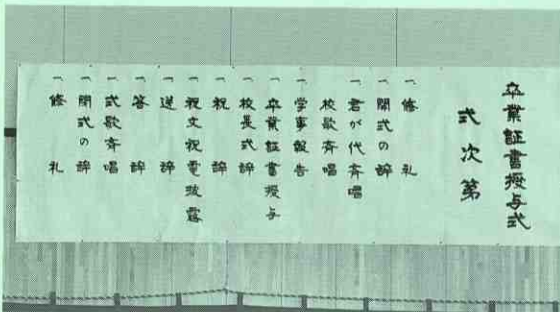 卒業証書授与式
式次第
一、修礼
一、開式の辞
一、君が代斉唱
校歌斉唱
一、学事報告
一、卒業証書授与
一、校長式辞
一、祝辞
一、祝文祝電披露
一、送辞
一、答辞
一、式歌斉唱
一、閉式の辞
一、修礼